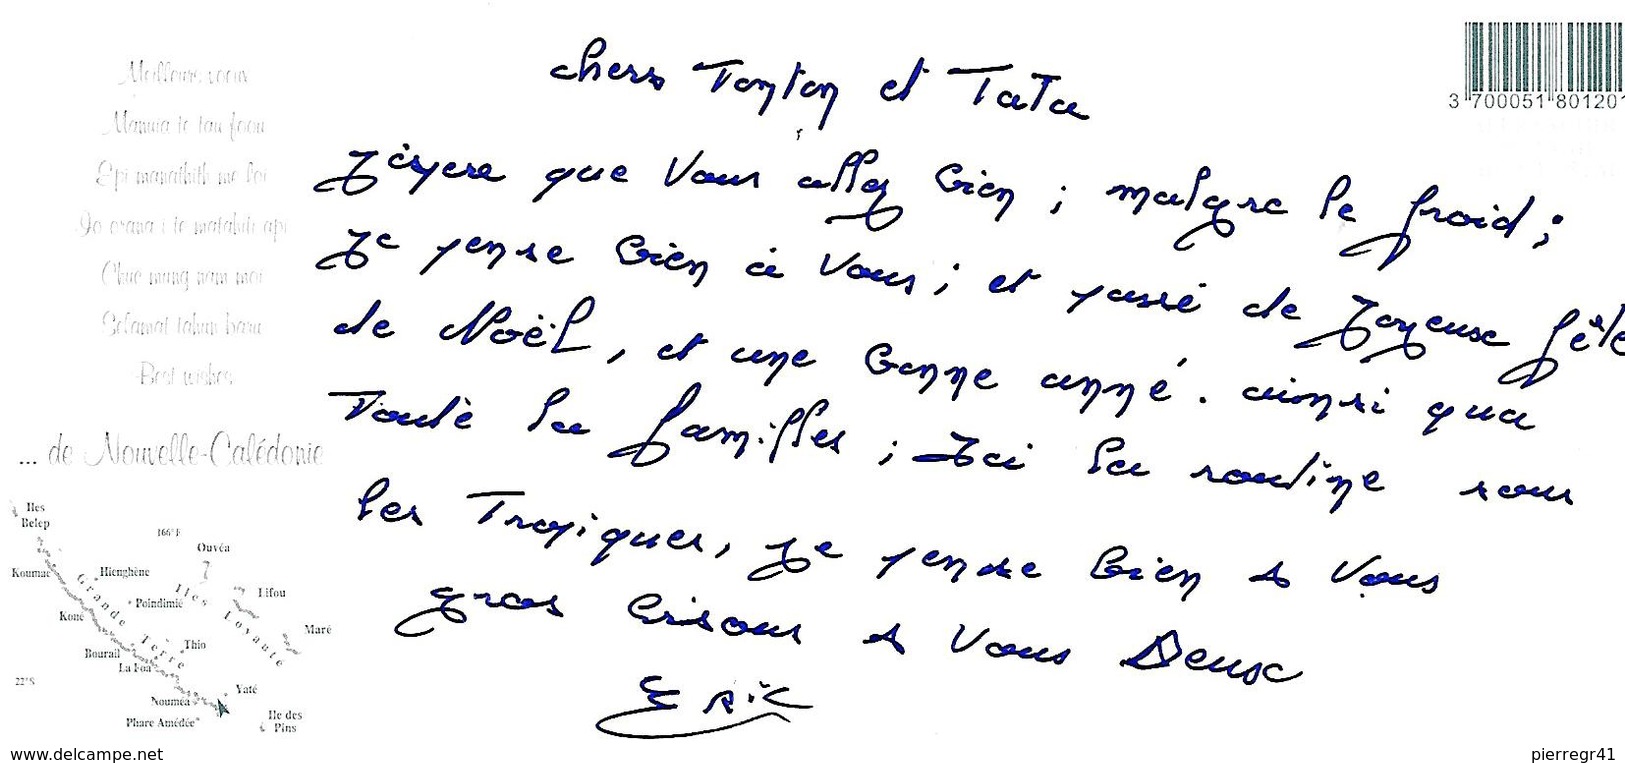 Meilleurs voeux
Manuia te tau foou
Epi manathith me loi
Io orana i te matahiti api
Chuc mung nam moi
Selamat tahun baru
Best wishes
... de Nouvelle-Calédonie
3 700051 801201
chers Tonton et Tata
J'éspere que Vous allez bien ; malgre le froid ;
Je pense bien à Vous ; et passé de Joyeuse fête
de Noël, et une bonne anné. ainsi qua
Toute la familles ; Ici la routine sous
les Tropiques, Je pense bien a Vous
gros bisous a Vous Deux
ERiC
Iles Belep
166°E
Ouvéa
Koumac
Hienghène
Grande Terre
Iles Loyauté
Lifou
Poindimié
Koné
Maré
Thio
Bourail
La Foa
22°S
Yaté
Nouméa
Phare Amédée
Ile des Pins
www.delcampe.net
pierregr41